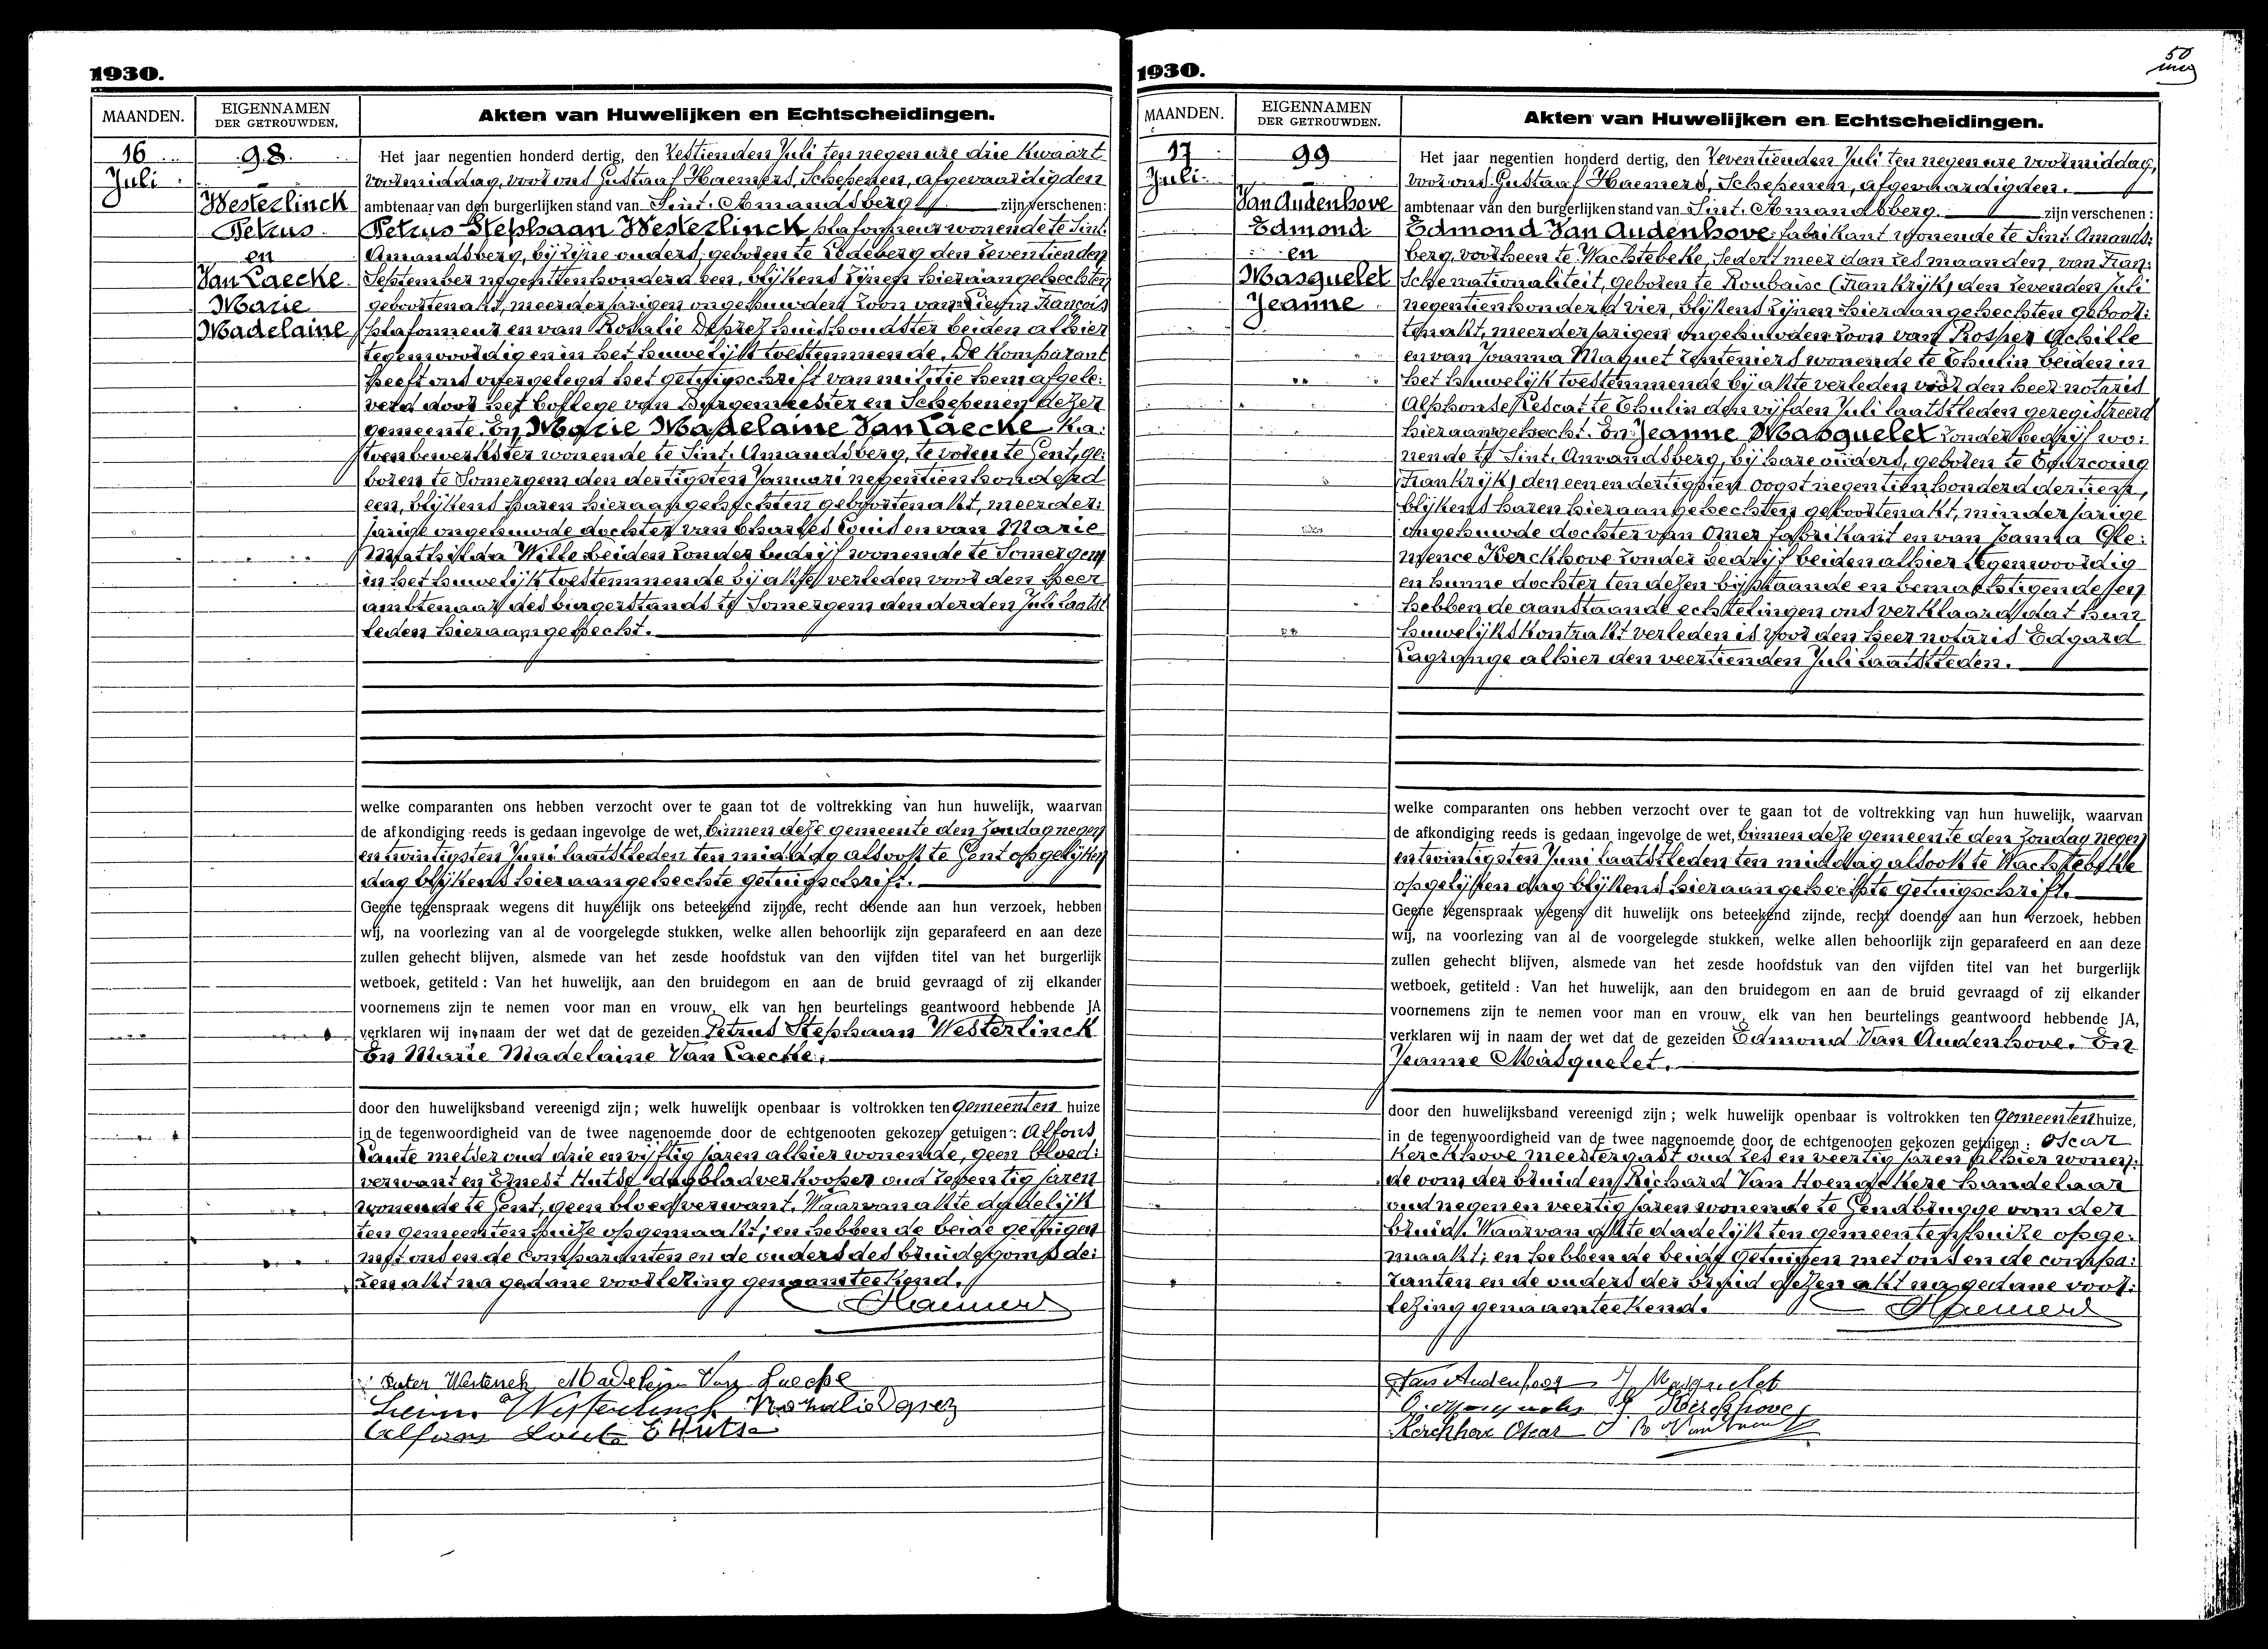 1930.
MAANDEN.
EIGENNAMEN
DER GETROUWDEN.
Akten van Huwelijken en Echtscheidingen.
16
Juli
98
Westerlinck
Petrus
en
Van Laecke
Marie
Madelaine
Het jaar negentien honderd dertig, den zestienden Juli ten negen ure drie kwaart
voormiddag, voor ons Gustaaf Haemers, Schepenen, afgevaardigden
ambtenaar van den burgerlijken stand van Sint. Amandsberg zijn verschenen:
Petrus Stephaan Westerlinck plafonneur wonende te Sint.
Amandsberg, bij zijne ouders, geboren te Ledeberg den zeventienden
September negentienhonderd een, blijkens zijnen hieraangehechten
geboortenakt, meerderjarigen ongehuwden zoon van Lievin François
plafonneur en van Rosalie Deprez huishoudster beiden alhier
tegenwoordig en in het huwelijk toestemmende. De Komparant
heeft ons overgelegd het getuigschrift van militie hem afgele:
verd door het College van Burgemeester en Schepenen dezer
gemeente. En Marie Madelaine Van Laecke Ka:
toenbewerkster wonende te Sint. Amandsberg, te voren te Gent, ge:
boren te Somergem den dertigsten Januari negentienhonderd
een, blijkens haren hieraangehechten geboortenakt, meerder:
jarige ongehuwde dochter van Charles Louis en van Marie
Mathilde Wille beiden zonder bedrijf wonende te Somergem
in het huwelijk toestemmende bij akte verleden voor den heer
ambtenaar des burgerstands te Somergem den derden Juli laatst
leden hieraangehecht.
welke comparanten ons hebben verzocht over te gaan tot de voltrekking van hun huwelijk, waarvan
de afkondiging reeds is gedaan ingevolge de wet, binnen deze gemeente den Zondag negen
en twintigsten Juni laatstleden ten middag alsook te Gent op gelijken
dag blijkens hieraangehechte getuigschrift.
Geene tegenspraak wegens dit huwelijk ons beteekend zijnde, recht doende aan hun verzoek, hebben
wij, na voorlezing van al de voorgelegde stukken, welke allen behoorlijk zijn geparafeerd en aan deze
zullen gehecht blijven, alsmede van het zesde hoofdstuk van den vijfden titel van het burgerlijk
wetboek, getiteld: Van het huwelijk, aan den bruidegom en aan de bruid gevraagd of zij elkander
voornemens zijn te nemen voor man en vrouw, elk van hen beurtelings geantwoord hebbende JA
verklaren wij in naam der wet dat de gezeiden Petrus Stephaan Westerlinck
En Marie Madelaine Van Laecke.
door den huwelijksband vereenigd zijn; welk huwelijk openbaar is voltrokken ten Gemeenten huize
in de tegenwoordigheid van de twee nagenoemde door de echtgenooten gekozen getuigen: Alfons
Laute metser oud drie en vijftig jaren alhier wonende, geen bloed:
verwant en Ernest Hutse dagbladverkooper oud zeventig jaren
wonende te Gent, geen bloedverwant. Waarvan akte dadelijk
ten gemeentenhuize opgemaakt; en hebben de beide getuigen
met ons en de Comparanten en de ouders des bruidegoms de:
zen akt na gedane voorlezing genaamteekend.
Haemers
Peter Westerlinck Madelein Van Laecke
Westerlinck Rosalie Deprez
Alfons Laute E Hutse
1930.
50
MAANDEN.
EIGENNAMEN
DER GETROUWDEN.
Akten van Huwelijken en Echtscheidingen.
17
Juli
99
Van Audenhove
Edmond
en
Masquelet
Jeanne
Het jaar negentien honderd dertig, den zeventienden Juli ten negen ure voormiddag,
voor ons Gustaaf Haemers, Schepenen, afgevaardigden.
ambtenaar van den burgerlijken stand van Sint. Amandsberg. zijn verschenen:
Edmond Van Audenhove fabrikant wonende te Sint. Amands:
berg, voorheen te Wachtebeke, sedert meer dan zes maanden, van Fran:
sche nationaliteit, geboren te Roubaise (Frankrijk) den zevenden Juli
negentienhonderd vier, blijkens zijnen hieraangehechten geboor:
tenakt, meerderjarigen ongehuwden zoon van Prosper Achille
en van Joanna Maquet renteniers wonende te Thulin beiden in
het huwelijk toestemmende bij akte verleden voor den heer notaris
Alphonse Lescat te Thulin den vijfden Juli laatstleden geregistreerd
hieraangehecht. En Jeanne Masquelet zonder bedrijf wo:
nende te Sint. Amandsberg, bij hare ouders, geboren te Tourcoing
(Frankrijk) den een en dertigsten oogst negentienhonderd dertien,
blijkens haren hieraangehechten geboortenakt, minderjarige
ongehuwde dochter van Omer fabrikant en van Joanna Cle:
mence Kerckhove zonder bedrijf beiden alhier tegenwoordig
en hunne dochter ten dezen bijstaande en bemachtigende en
hebben de aanstaande echtelingen ons verklaard dat hun
huwelijkskontrakt verleden is voor den heer notaris Edgard
Lagrange alhier den veertienden Juli laatstleden.
welke comparanten ons hebben verzocht over te gaan tot de voltrekking van hun huwelijk, waarvan
de afkondiging reeds is gedaan ingevolge de wet, binnen deze gemeente den Zondag negen
en twintigsten Juni laatstleden ten middag alsook te Wachtebeke
op gelijken dag blijkens hieraangehechte getuigschrift.
Geene tegenspraak wegens dit huwelijk ons beteekend zijnde, recht doende aan hun verzoek, hebben
wij, na voorlezing van al de voorgelegde stukken, welke allen behoorlijk zijn geparafeerd en aan deze
zullen gehecht blijven, alsmede van het zesde hoofdstuk van den vijfden titel van het burgerlijk
wetboek, getiteld: Van het huwelijk, aan den bruidegom en aan de bruid gevraagd of zij elkander
voornemens zijn te nemen voor man en vrouw, elk van hen beurtelings geantwoord hebbende JA,
verklaren wij in naam der wet dat de gezeiden Edmond Van Audenhove. En
Jeanne Masquelet.
door den huwelijksband vereenigd zijn; welk huwelijk openbaar is voltrokken ten Gemeentenhuize,
in de tegenwoordigheid van de twee nagenoemde door de echtgenooten gekozen getuigen: Oscar
Kerckhove meestergast oud zes en veertig jaren alhier wonen:
de oom der bruid en Richard Van Hoendekere handelaar
oud negen en veertig jaren wonende te Gendbrugge oom der
bruid. Waarvan akte dadelijk ten gemeentenhuize opge:
maakt; en hebben de beide getuigen met ons en de compa:
ranten en de ouders der bruid dezen akt na gedane voor:
lezing genaamteekend. Haemers
Van Audenhove J. Masquelet
Kerckhove
Kerckhove Oscar